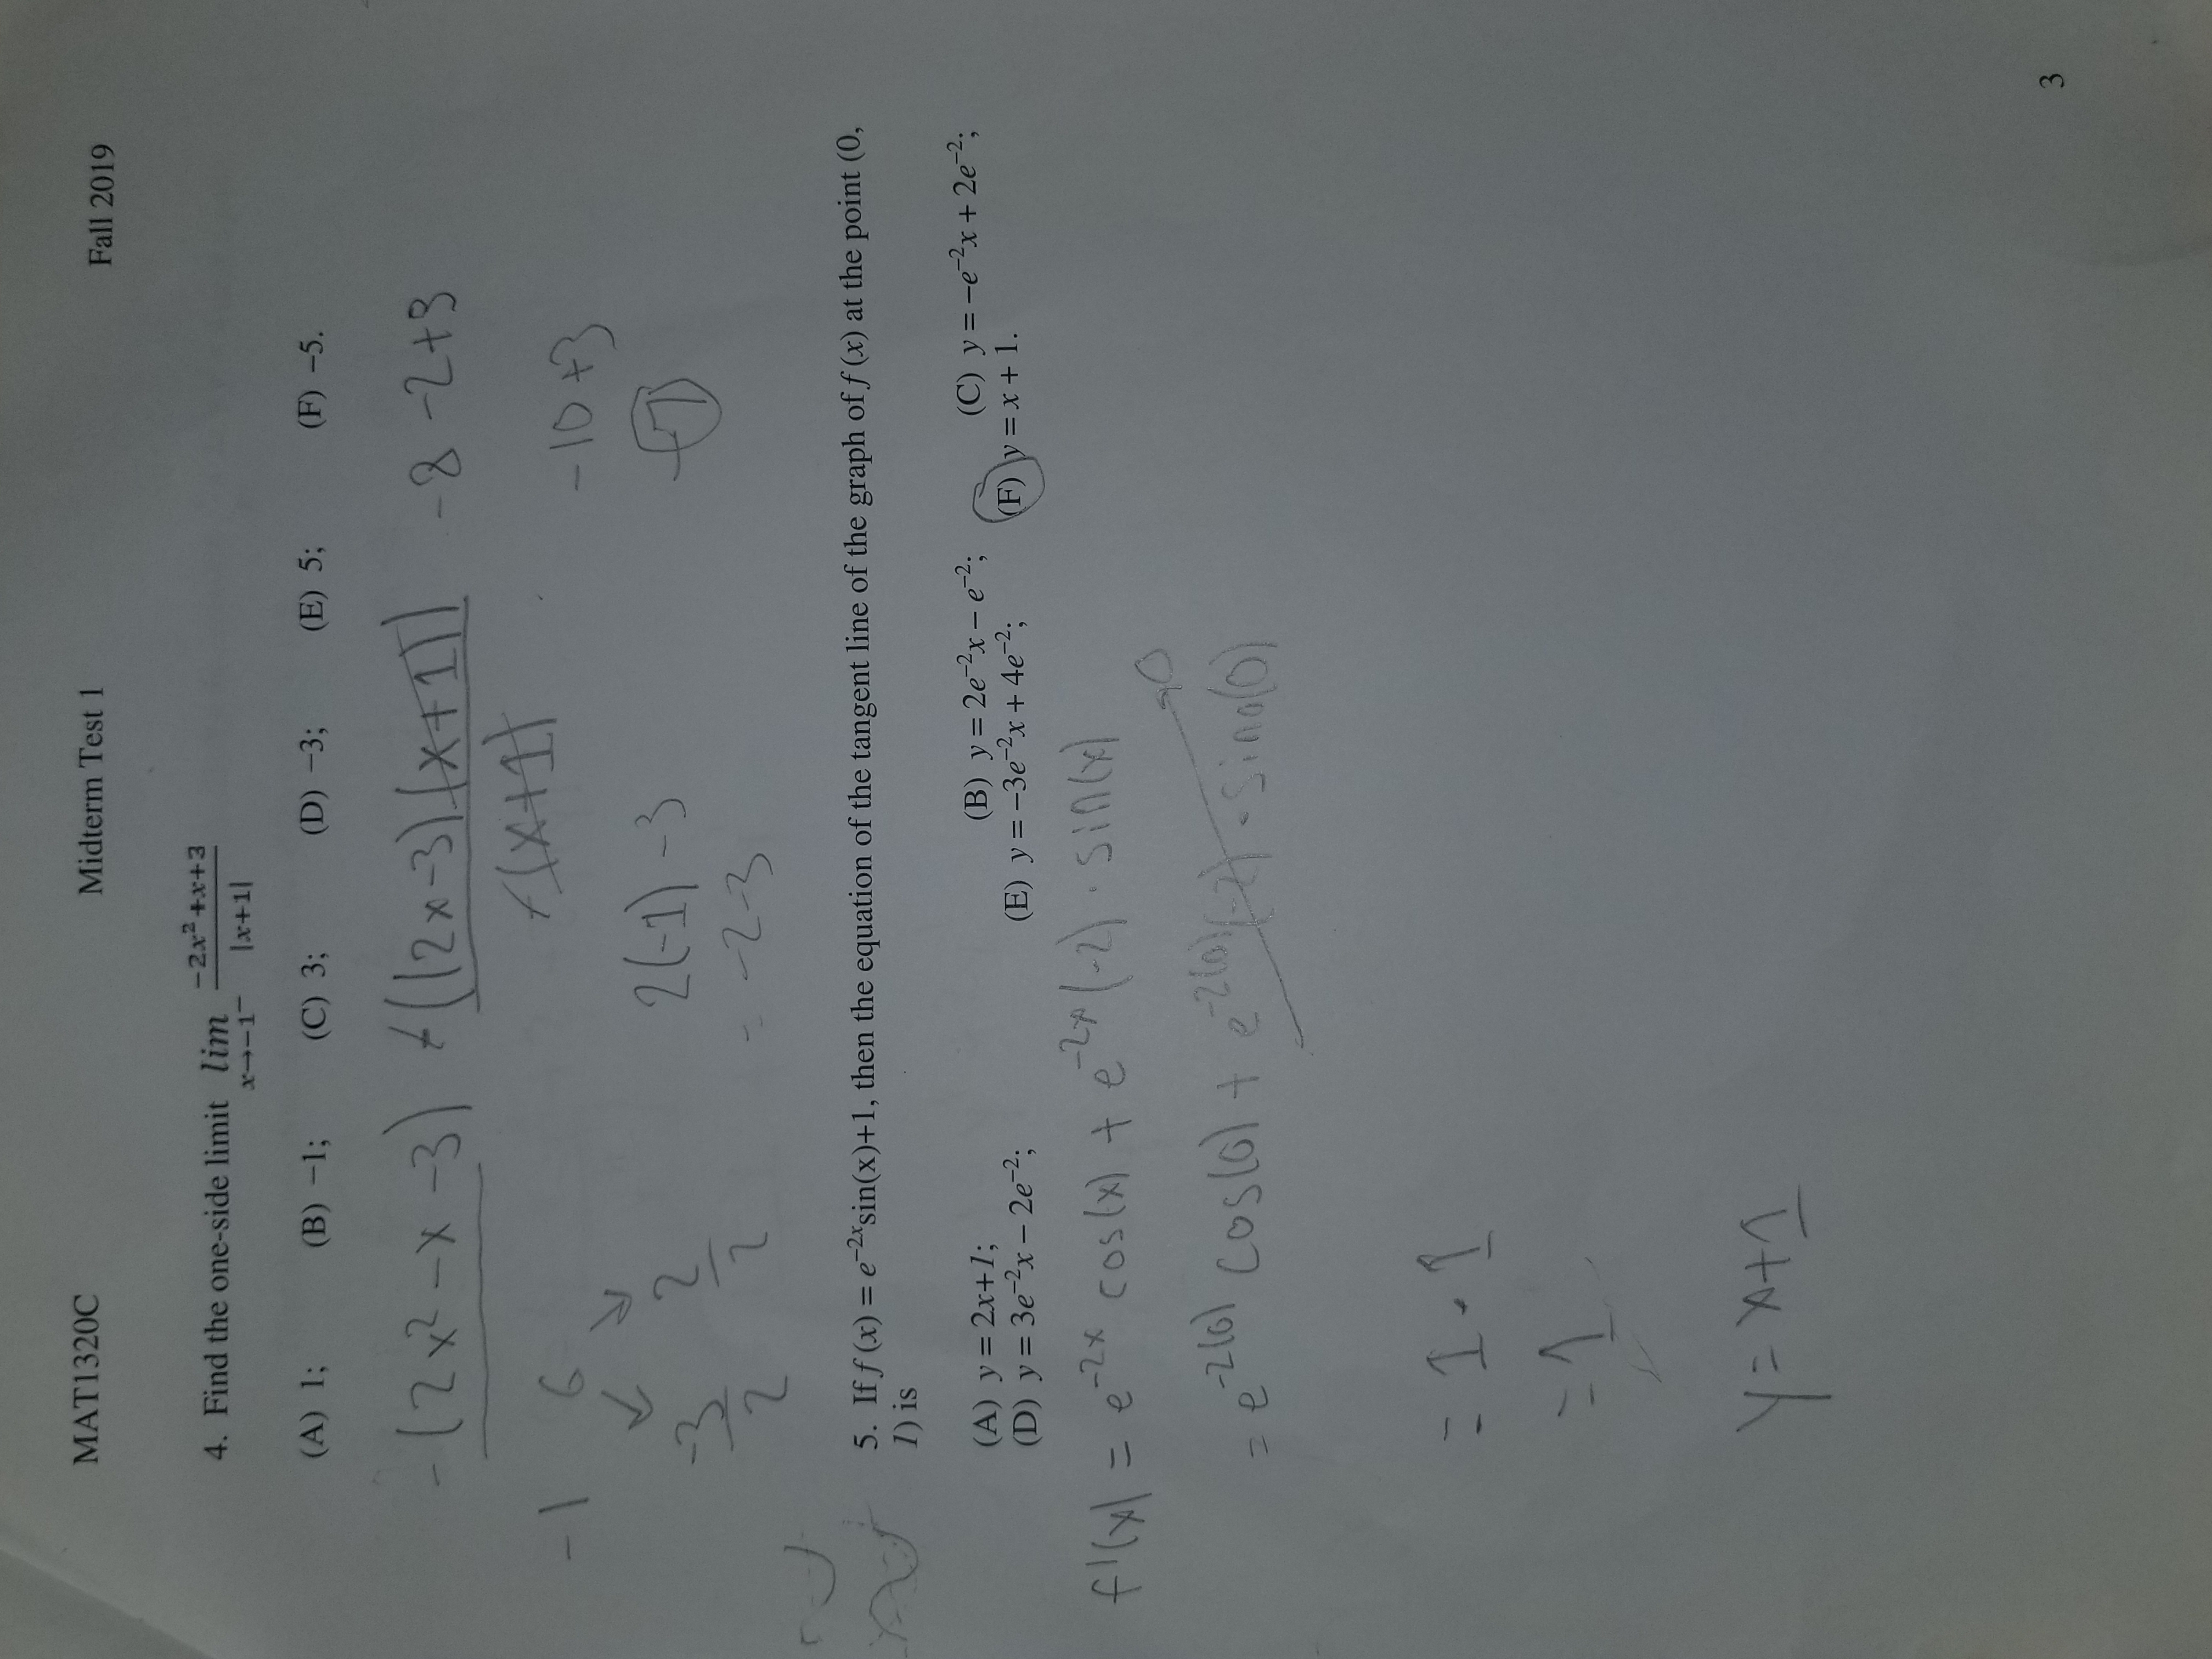 MAT1320C Midterm Test 1 Fall 2019
4. Find the one-side limit lim x→−1⁻ (−2x²+x+3)/|x+1|
(A) 1; (B) −1; (C) 3; (D) −3; (E) 5; (F) −5.
-(2x² - x - 3) -((2x-3)(x+1)) -8 -2+3
-(x+1)
-1 6 -10+3
-3/2 2/2 2(-1) -3 -7
= -2-3
5. If f (x) = e⁻²ˣsin(x)+1, then the equation of the tangent line of the graph of f (x) at the point (0,
1) is
(A) y = 2x+1; (B) y = 2e⁻²x − e⁻²; (C) y = −e⁻²x + 2e⁻²;
(D) y = 3e⁻²x − 2e⁻²; (E) y = −3e⁻²x + 4e⁻²; (F) y = x + 1.
f'(x) = e⁻²ˣ cos(x) + e⁻²ˣ(-2) · sin(x)
= e⁻²⁽⁰⁾ cos(0) + e⁻²⁽⁰⁾(-2) · sin(0) → 0
= 1 · 1
= 1
y = x+1
3